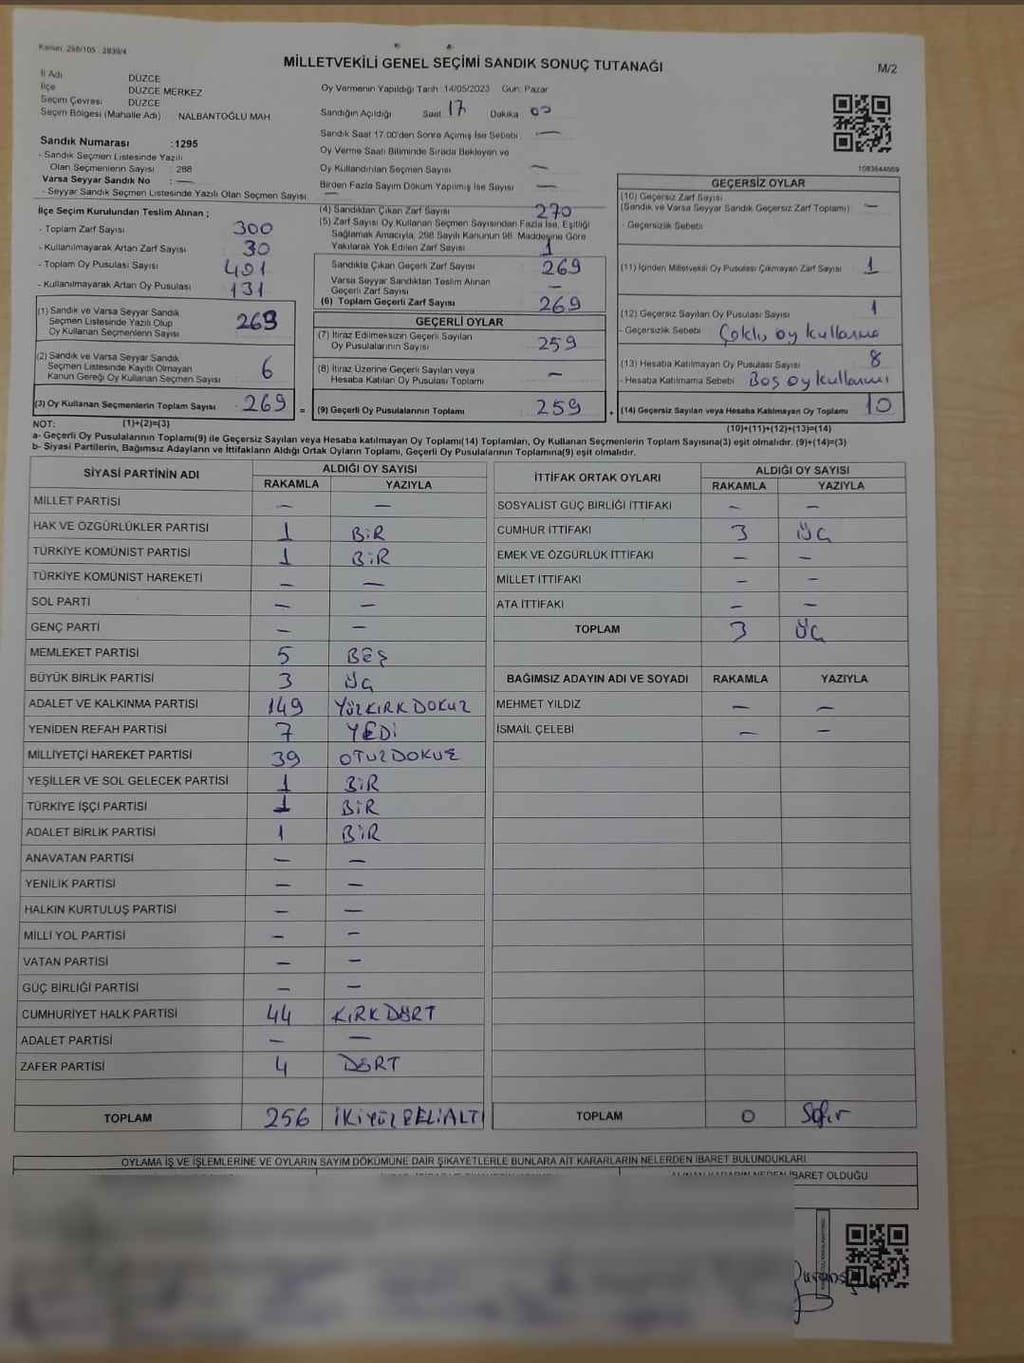 Kanun: 298/105 : 2839/4
MİLLETVEKİLİ GENEL SEÇİMİ SANDIK SONUÇ TUTANAĞI
M/2
İl Adı DÜZCE
İlçe DÜZCE MERKEZ
Seçim Çevresi DÜZCE
Seçim Bölgesi (Mahalle Adı) NALBANTOĞLU MAH
Oy Vermenin Yapıldığı Tarih :14/05/2023 Gün: Pazar
Sandığın Açıldığı Saat 17 Dakika 00
Sandık Saat 17.00'den Sonra Açılmış İse Sebebi —
Oy Verme Saati Bitiminde Sırada Bekleyen ve
Oy Kullandırılan Seçmen Sayısı —
Birden Fazla Sayım Döküm Yapılmış İse Sayısı —
Sandık Numarası :1295
- Sandık Seçmen Listesinde Yazılı
Olan Seçmenlerin Sayısı : 288
Varsa Seyyar Sandık No : —
- Seyyar Sandık Seçmen Listesinde Yazılı Olan Seçmen Sayısı —
İlçe Seçim Kurulundan Teslim Alınan ;
- Toplam Zarf Sayısı 300
- Kullanılmayarak Artan Zarf Sayısı 30
- Toplam Oy Pusulası Sayısı 401
- Kullanılmayarak Artan Oy Pusulası 131
(1) Sandık ve Varsa Seyyar Sandık
Seçmen Listesinde Yazılı Olup
Oy Kullanan Seçmenlerin Sayısı 263
(2) Sandık ve Varsa Seyyar Sandık
Seçmen Listesinde Kayıtlı Olmayan
Kanun Gereği Oy Kullanan Seçmen Sayısı 6
(3) Oy Kullanan Seçmenlerin Toplam Sayısı 269 =
(4) Sandıktan Çıkan Zarf Sayısı 270
(5) Zarf Sayısı Oy Kullanan Seçmen Sayısından Fazla İse, Eşitliği
Sağlamak Amacıyla, 298 Sayılı Kanunun 98. Maddesine Göre
Yakılarak Yok Edilen Zarf Sayısı 1
Sandıkta Çıkan Geçerli Zarf Sayısı 269
Varsa Seyyar Sandıktan Teslim Alınan
Geçerli Zarf Sayısı —
(6) Toplam Geçerli Zarf Sayısı 269
GEÇERLİ OYLAR
(7) İtiraz Edilmeksizin Geçerli Sayılan
Oy Pusulalarının Sayısı 259
(8) İtiraz Üzerine Geçerli Sayılan veya
Hesaba Katılan Oy Pusulası Toplamı —
(9) Geçerli Oy Pusulalarının Toplamı 259 +
1083644669
GEÇERSİZ OYLAR
(10) Geçersiz Zarf Sayısı
(Sandık ve Varsa Seyyar Sandık Geçersiz Zarf Toplamı) —
- Geçersizlik Sebebi
(11) İçinden Milletvekili Oy Pusulası Çıkmayan Zarf Sayısı 1
(12) Geçersiz Sayılan Oy Pusulası Sayısı 1
- Geçersizlik Sebebi Çoklu oy kullanma
(13) Hesaba Katılmayan Oy Pusulası Sayısı 8
- Hesaba Katılmama Sebebi Boş oy kullanımı
(14) Geçersiz Sayılan veya Hesaba Katılmayan Oy Toplamı 10
NOT: (1)+(2)=(3)
(10)+(11)+(12)+(13)=(14)
a- Geçerli Oy Pusulalarının Toplamı(9) ile Geçersiz Sayılan veya Hesaba katılmayan Oy Toplamı(14) Toplamları, Oy Kullanan Seçmenlerin Toplam Sayısına(3) eşit olmalıdır. (9)+(14)=(3)
b- Siyasi Partilerin, Bağımsız Adayların ve İttifakların Aldığı Ortak Oyların Toplamı, Geçerli Oy Pusulalarının Toplamına(9) eşit olmalıdır.
SİYASİ PARTİNİN ADI ALDIĞI OY SAYISI
RAKAMLA YAZIYLA
MİLLET PARTİSİ — —
HAK VE ÖZGÜRLÜKLER PARTİSİ 1 BİR
TÜRKİYE KOMÜNİST PARTİSİ 1 BİR
TÜRKİYE KOMÜNİST HAREKETİ — —
SOL PARTİ — —
GENÇ PARTİ — —
MEMLEKET PARTİSİ 5 BEŞ
BÜYÜK BİRLİK PARTİSİ 3 ÜÇ
ADALET VE KALKINMA PARTİSİ 149 YÜZ KIRK DOKUZ
YENİDEN REFAH PARTİSİ 7 YEDİ
MİLLİYETÇİ HAREKET PARTİSİ 39 OTUZ DOKUZ
YEŞİLLER VE SOL GELECEK PARTİSİ 1 BİR
TÜRKİYE İŞÇİ PARTİSİ 1 BİR
ADALET BİRLİK PARTİSİ 1 BİR
ANAVATAN PARTİSİ — —
YENİLİK PARTİSİ — —
HALKIN KURTULUŞ PARTİSİ — —
MİLLİ YOL PARTİSİ — —
VATAN PARTİSİ — —
GÜÇ BİRLİĞİ PARTİSİ — —
CUMHURİYET HALK PARTİSİ 44 KIRK DÖRT
ADALET PARTİSİ — —
ZAFER PARTİSİ 4 DÖRT
TOPLAM 256 İKİ YÜZ ELLİ ALTI
İTTİFAK ORTAK OYLARI ALDIĞI OY SAYISI
RAKAMLA YAZIYLA
SOSYALİST GÜÇ BİRLİĞİ İTTİFAKI — —
CUMHUR İTTİFAKI 3 ÜÇ
EMEK VE ÖZGÜRLÜK İTTİFAKI — —
MİLLET İTTİFAKI — —
ATA İTTİFAKI — —
TOPLAM 3 ÜÇ
BAĞIMSIZ ADAYIN ADI VE SOYADI RAKAMLA YAZIYLA
MEHMET YILDIZ — —
İSMAİL ÇELEBİ — —
TOPLAM 0 Sıfır
OYLAMA İŞ VE İŞLEMLERİNE VE OYLARIN SAYIM DÖKÜMÜNE DAİR ŞİKAYETLERLE BUNLARA AİT KARARLARIN NELERDEN İBARET BULUNDUKLARI
İBARET OLDUĞU